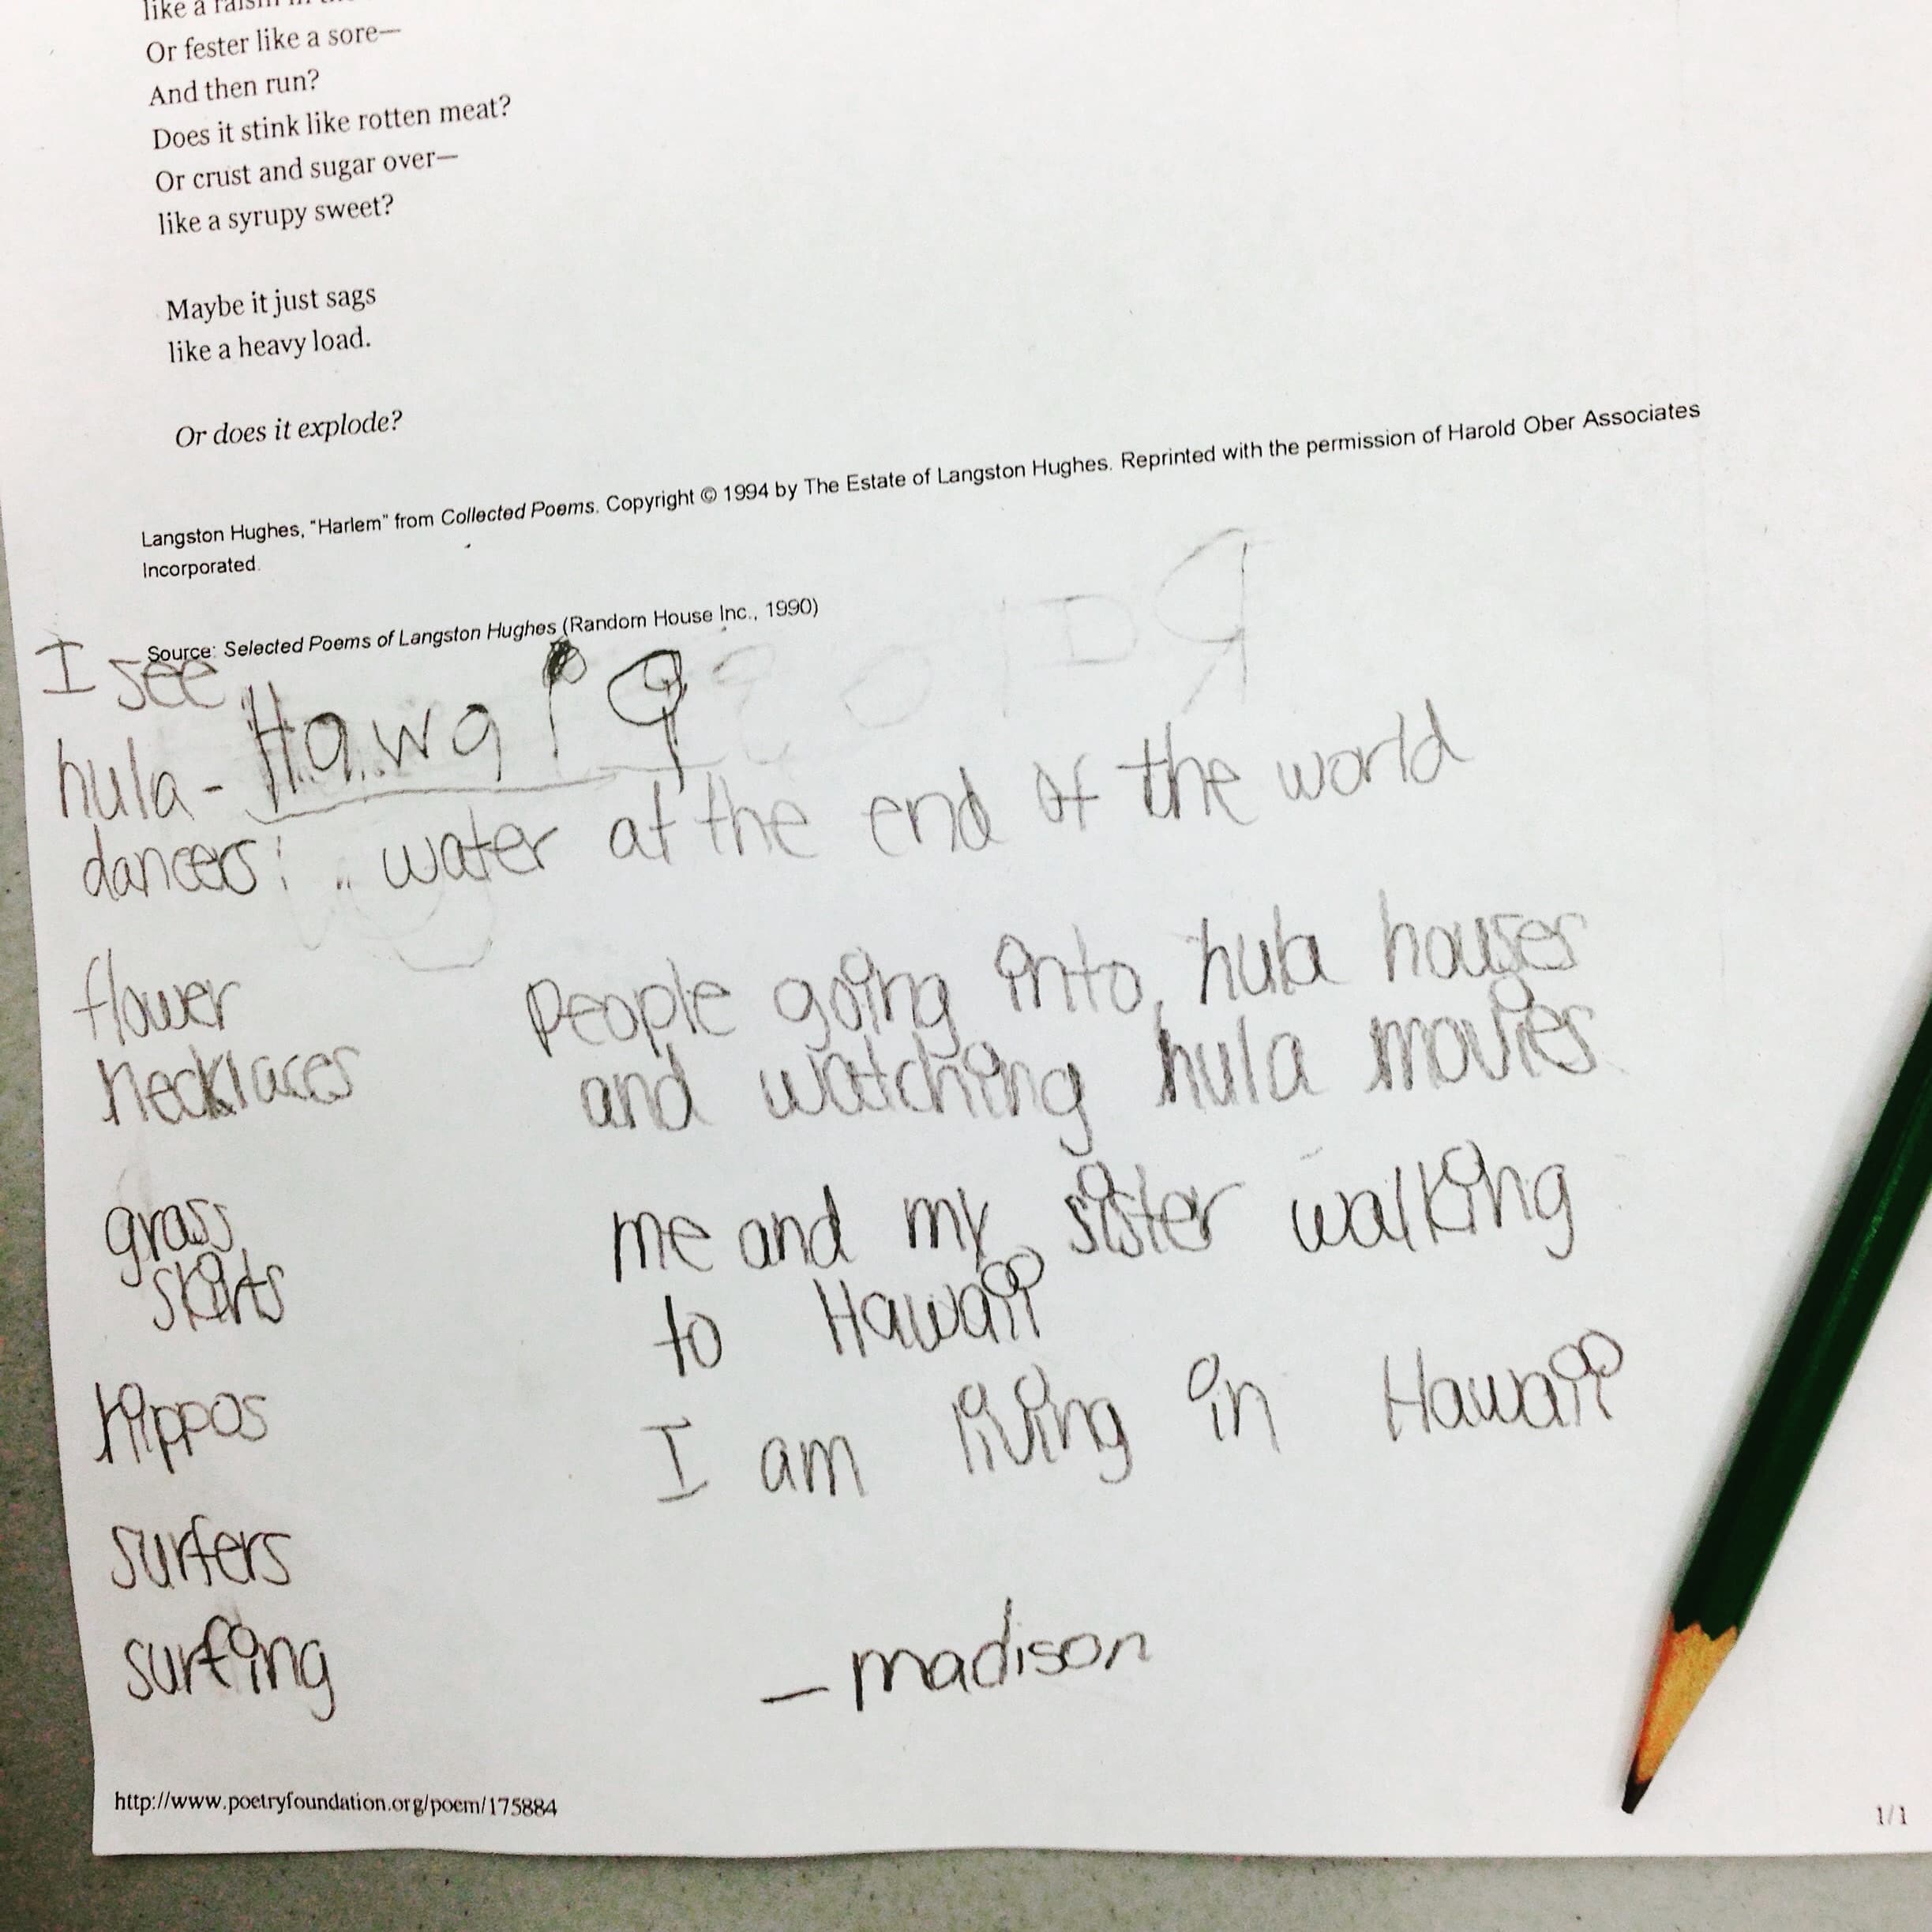 like a raisin in the
Or fester like a sore—
And then run?
Does it stink like rotten meat?
Or crust and sugar over—
like a syrupy sweet?
Maybe it just sags
like a heavy load.
Or does it explode?
Langston Hughes, "Harlem" from Collected Poems. Copyright © 1994 by The Estate of Langston Hughes. Reprinted with the permission of Harold Ober Associates
Incorporated.
Source: Selected Poems of Langston Hughes (Random House Inc., 1990)
I see
hula-
dancers:
flower
necklaces
grass
skirts
hippos
surfers
surfing
Hawaii
water at the end of the world
People going into, hula houses
and watching hula movies
me and my sister walking
to Hawaii
I am living in Hawaii
— madison
http://www.poetryfoundation.org/poem/175884
1/1